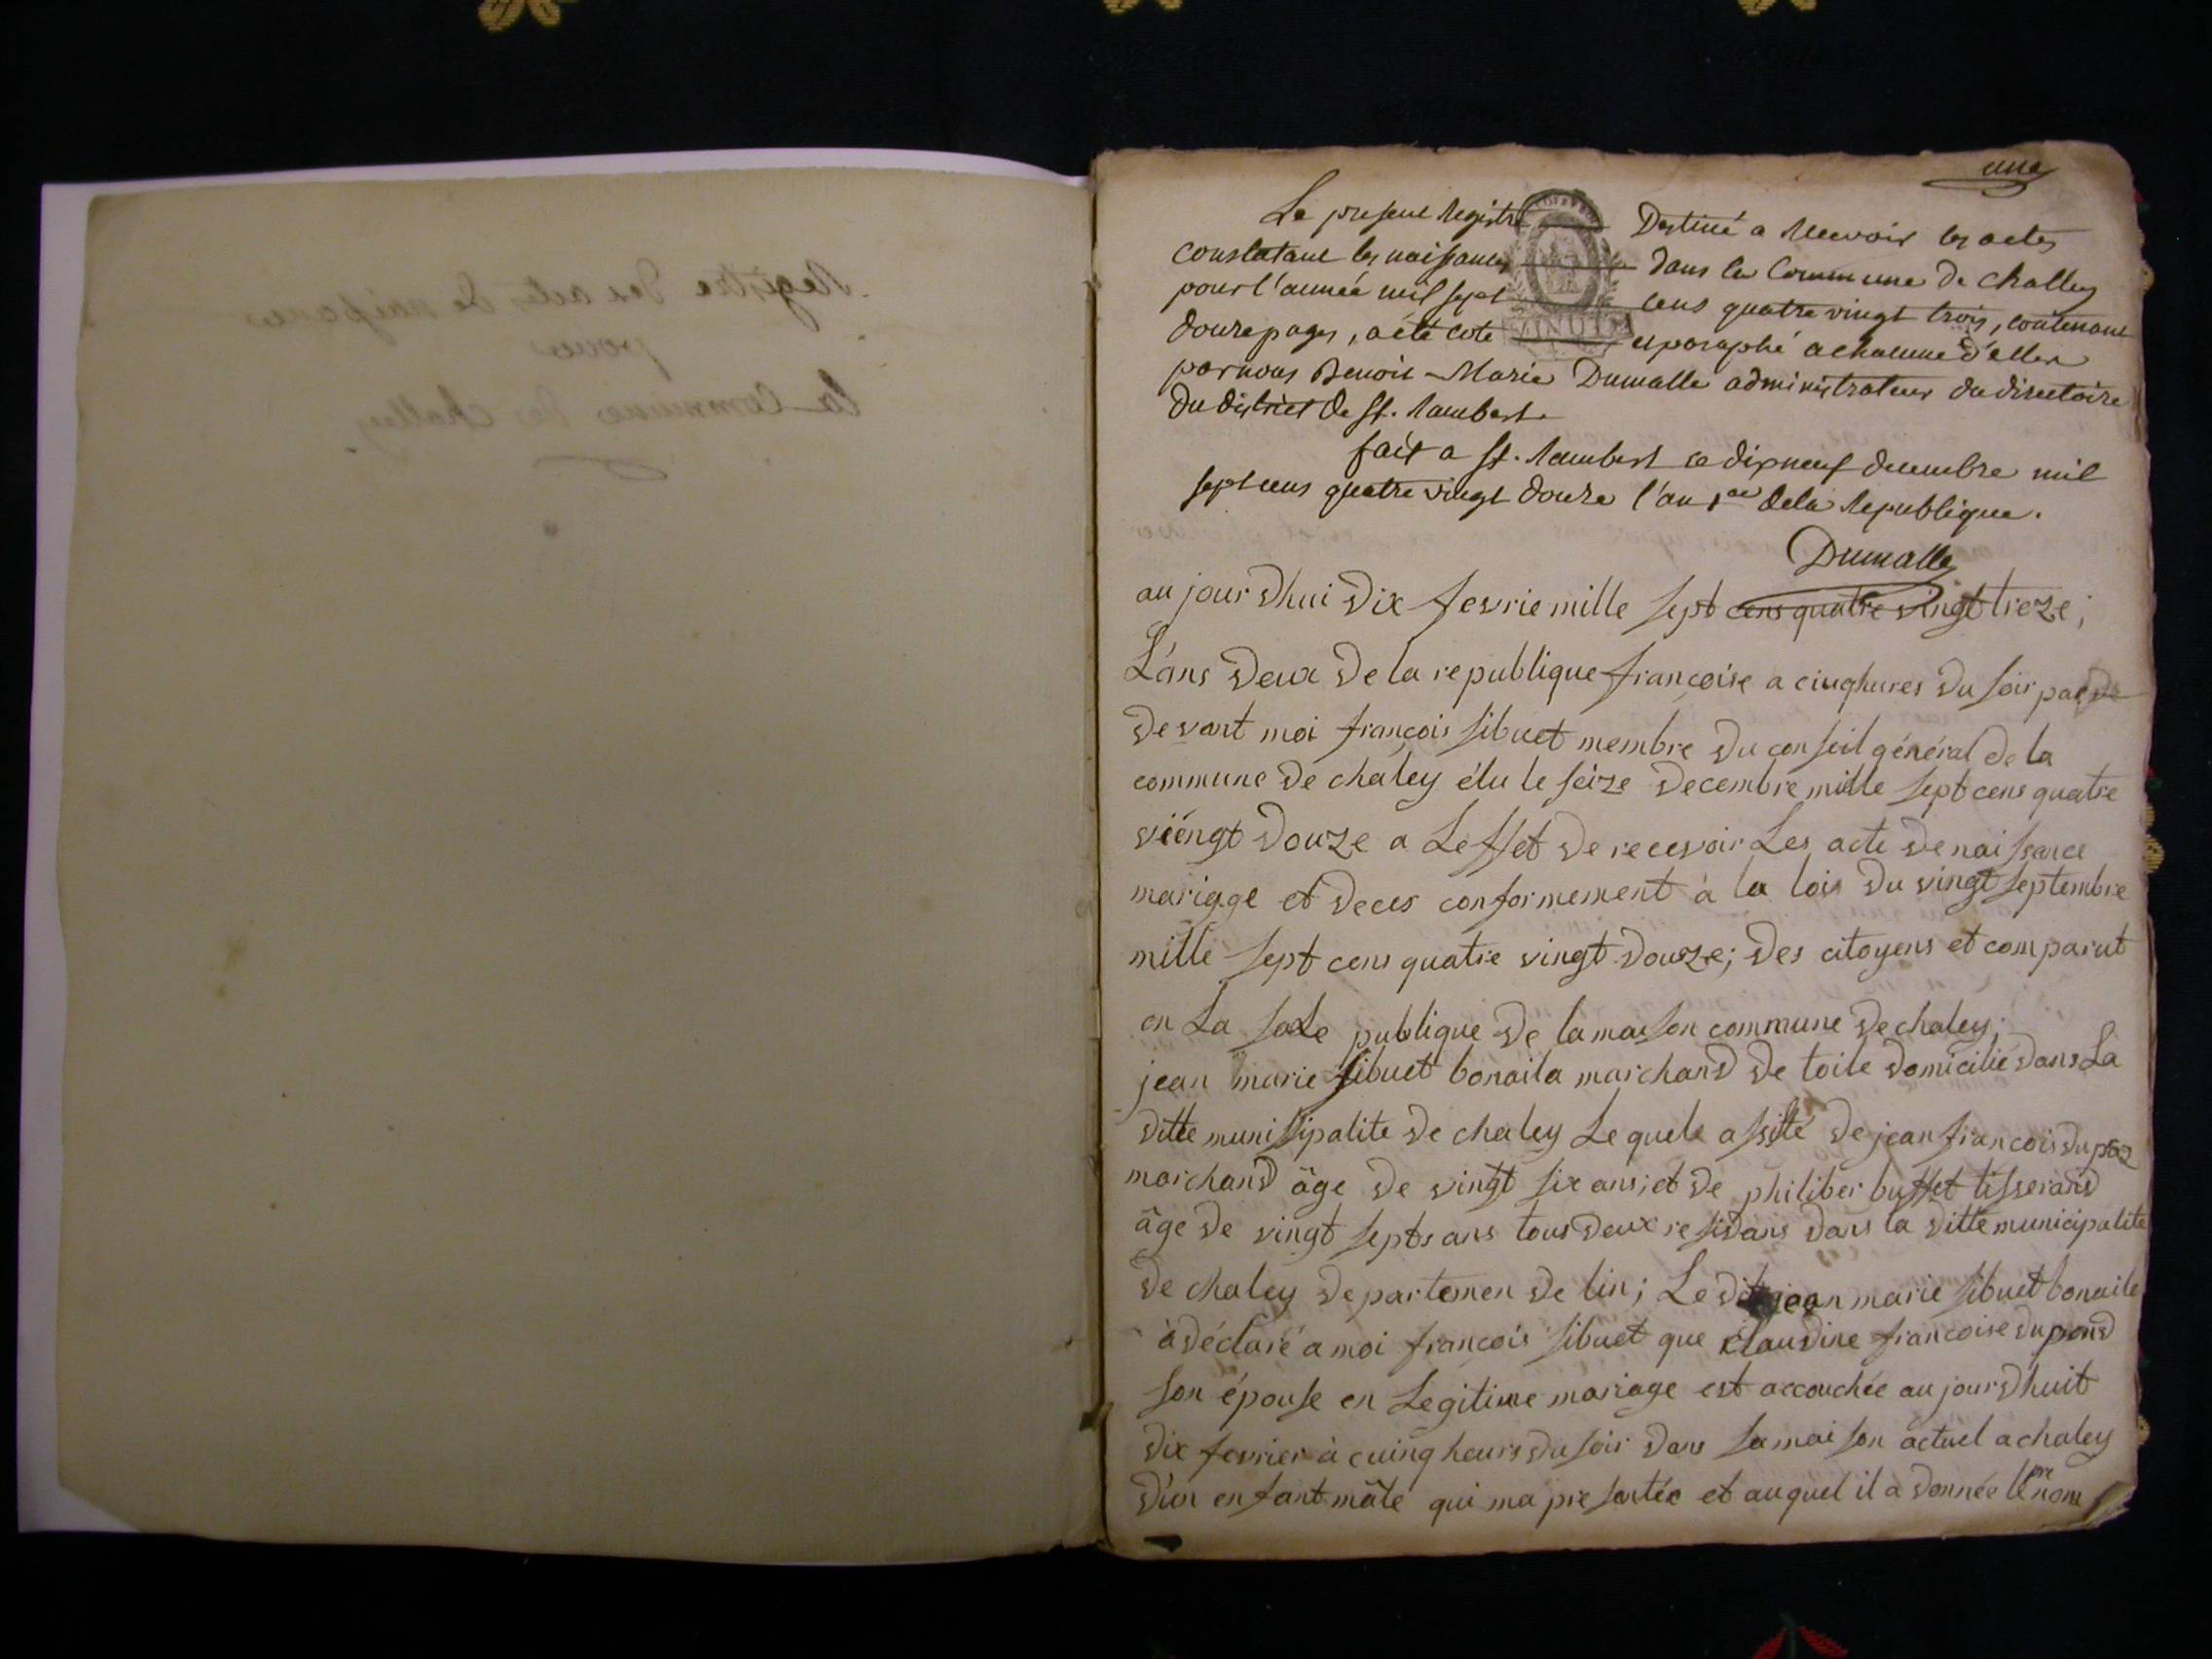 Registre des actes de naissances
pour
la Commune de Challey
une
Le present Registre Destiné a Recevoir les actes
constatant les naissances dans la Commune de challey
pour l'année mil sept cens quatre vingt trois, contenant
douze pages, a été coté et paraphé a chacune d'elles
par nous Benoit-Marie Dumalle administrateur du directoire
du district de St. Rambert.
fait a St. Rambert ce dixneuf decembre mil
sept cens quatre vingt douze l'an 1er de la Republique.
Dumalle
au jour dhui dix fevrie mille sept cens quatre vingt treze;
L'ans deux de la republique françoise a cinqhures du soir par
devant moi françois sibuet membre du conseil général de la
commune de chaley élu le séize decembre mille sept cens quatre
viéngt douze a Leffet de recevoir Les acte de naissance
mariage et deces conformement à la lois du vingt septembre
mille sept cens quatre vingt douze; des citoyens et comparut
en La sale publique de la maison commune de chaley;
jean marie sibuet bonaila marchand de toile domicilié dans La
ditte munissipalite de chaley Le quele assité de jean francois dupraz
marchand âge de vingt six ans; et de philiber buffet tisserand
âge de vingt septs ans tous deux residans dans la ditte municipalite
de chaley departemen de lin; Le dit jean marie sibuet bonaile
à déclaré a moi francois sibuet que claudine francoise dupond
son épouse en Legitime mariage est accouchée au jourdhuit
dix fevrier à cuinq heurs du soir dans sa maison actuel a chaley
d'un enfant mâle qui ma presentée et auquel il a donnée le prenom